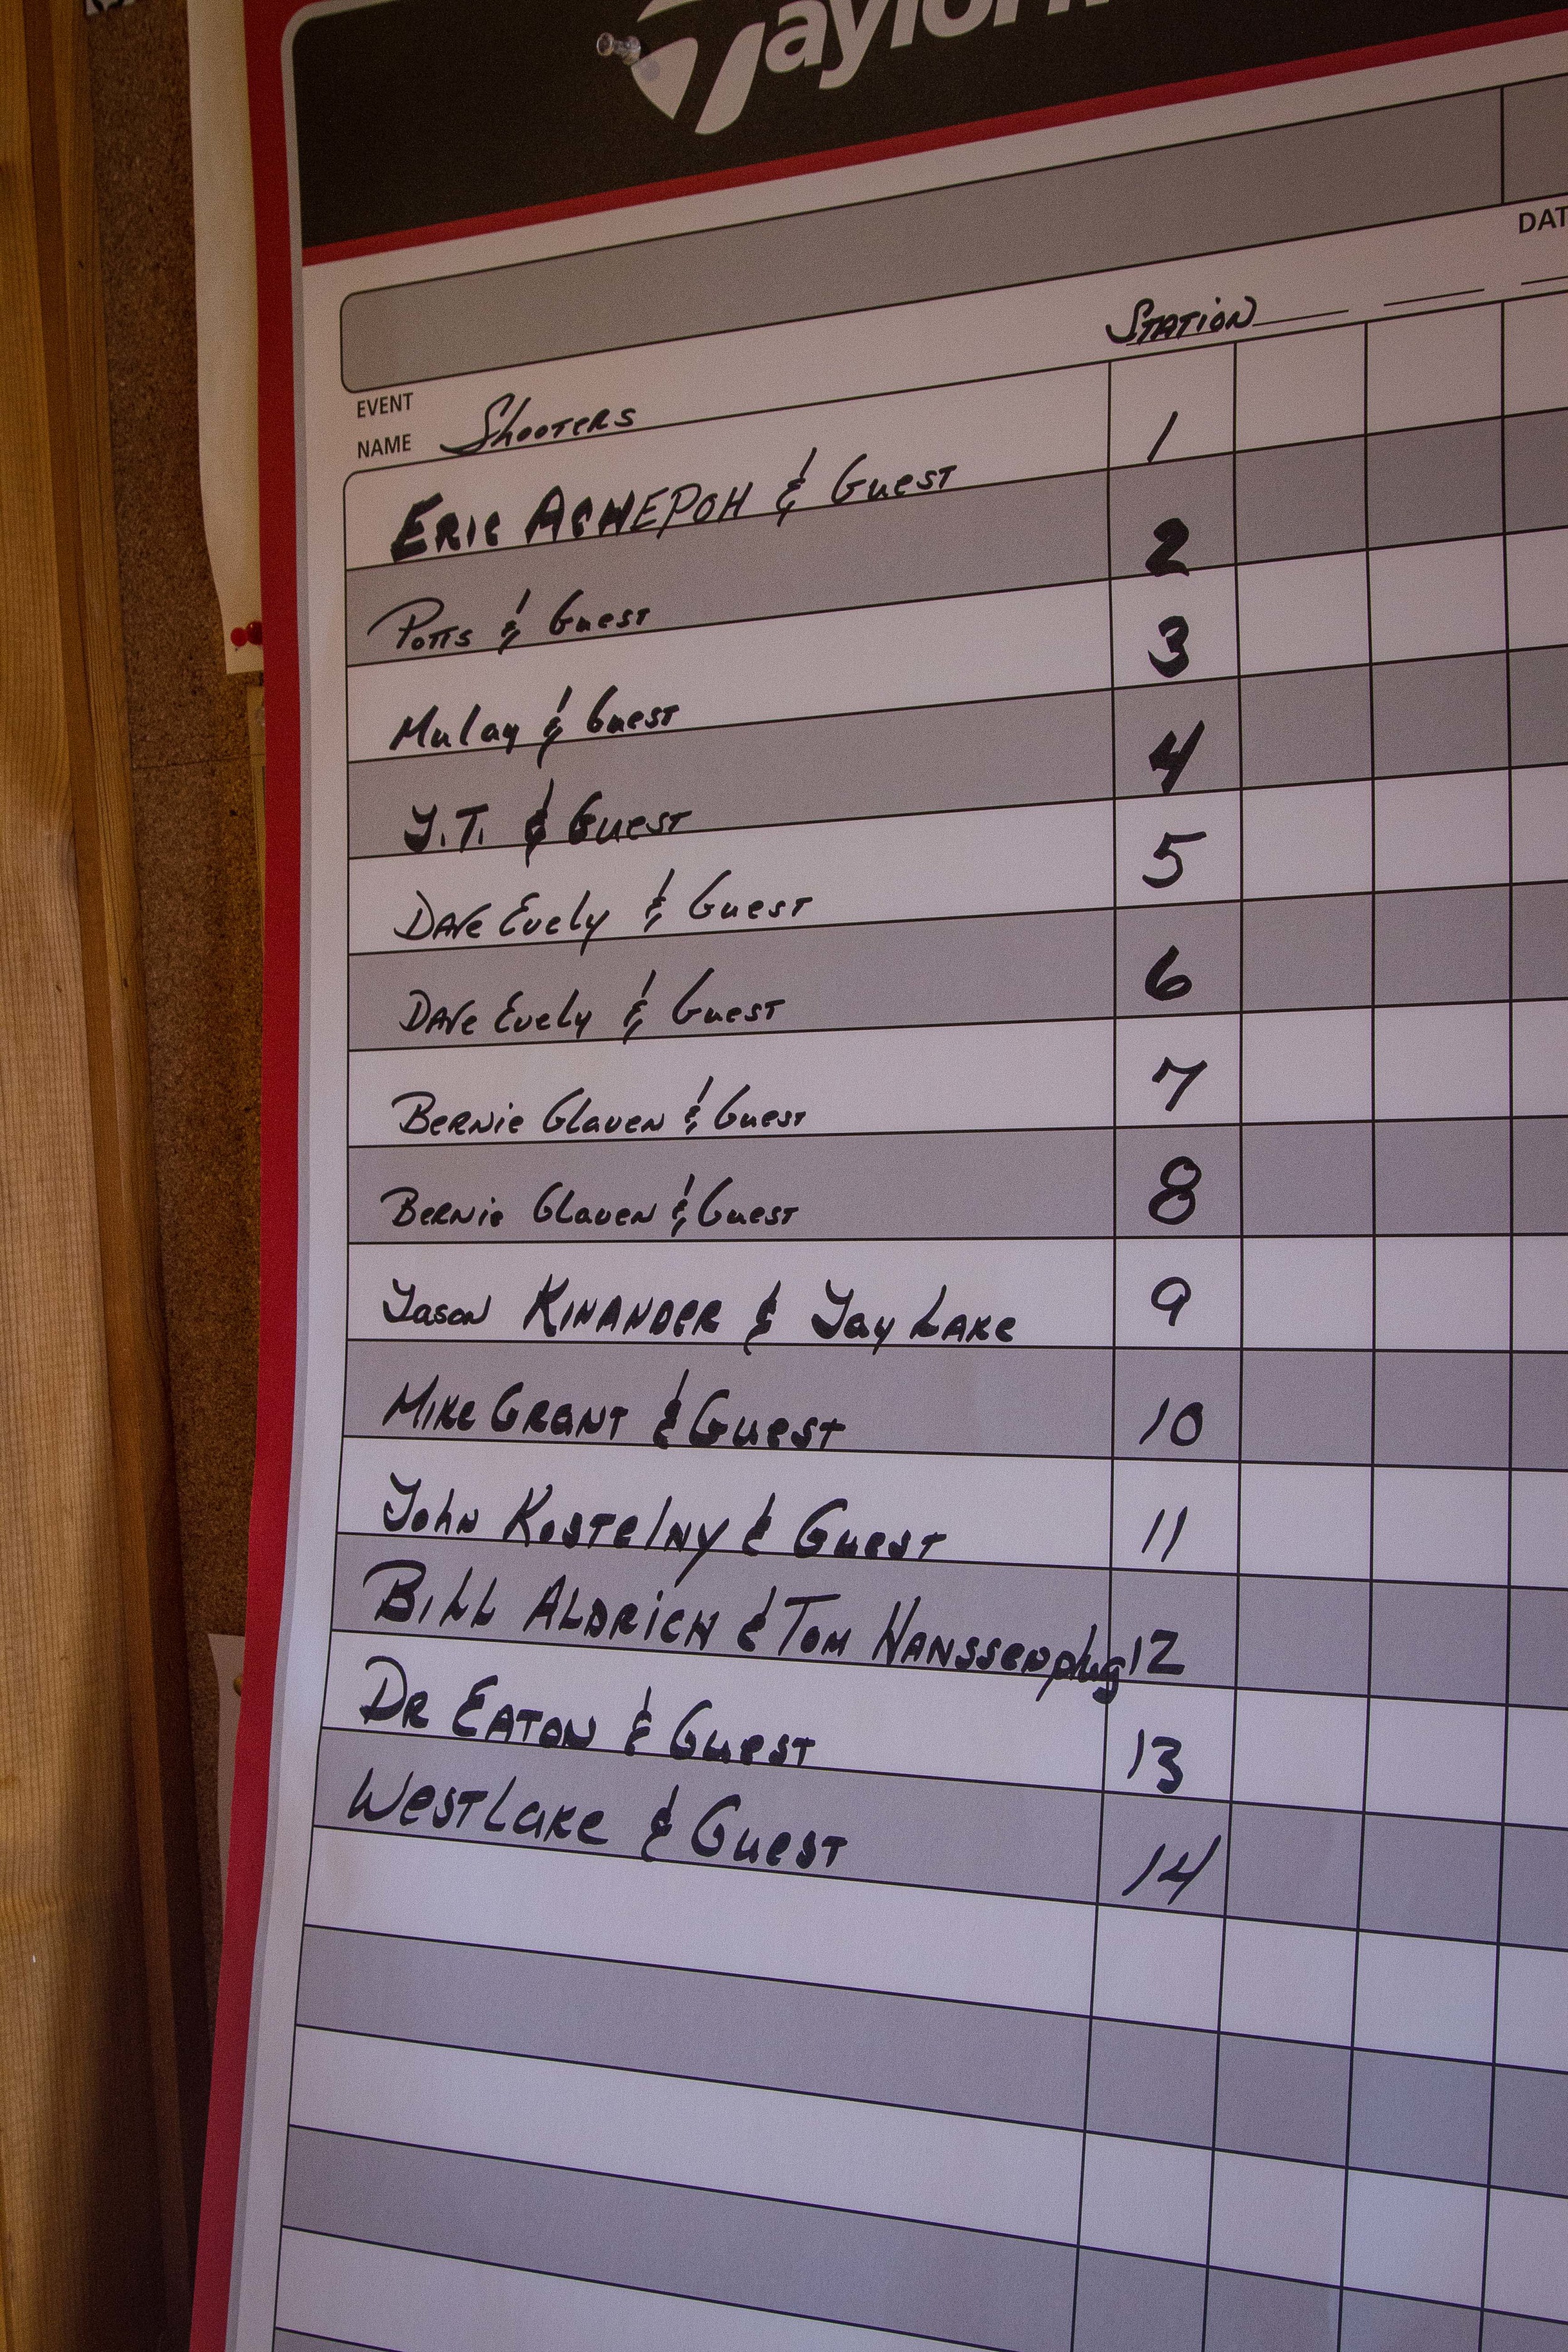 Taylor
DAT
STATION
EVENT
NAME Shooters
ERIC ACHEPOH & Guest 1
Potts & Guest 2
Mulay & Guest 3
J.T. & Guest 4
Dave Evely & Guest 5
Dave Evely & Guest 6
Bernie Glaven & Guest 7
Bernie Glaven & Guest 8
Jason KINANDER & Jay LAKE 9
Mike GRANT & Guest 10
John Kostelny & Guest 11
BILL ALDRICH & Tom HANSSENplug 12
DR EATON & Guest 13
WestLake & Guest 14